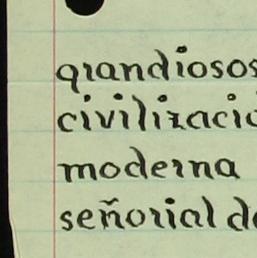 grandiosos
civilizacio
moderna
señorial de